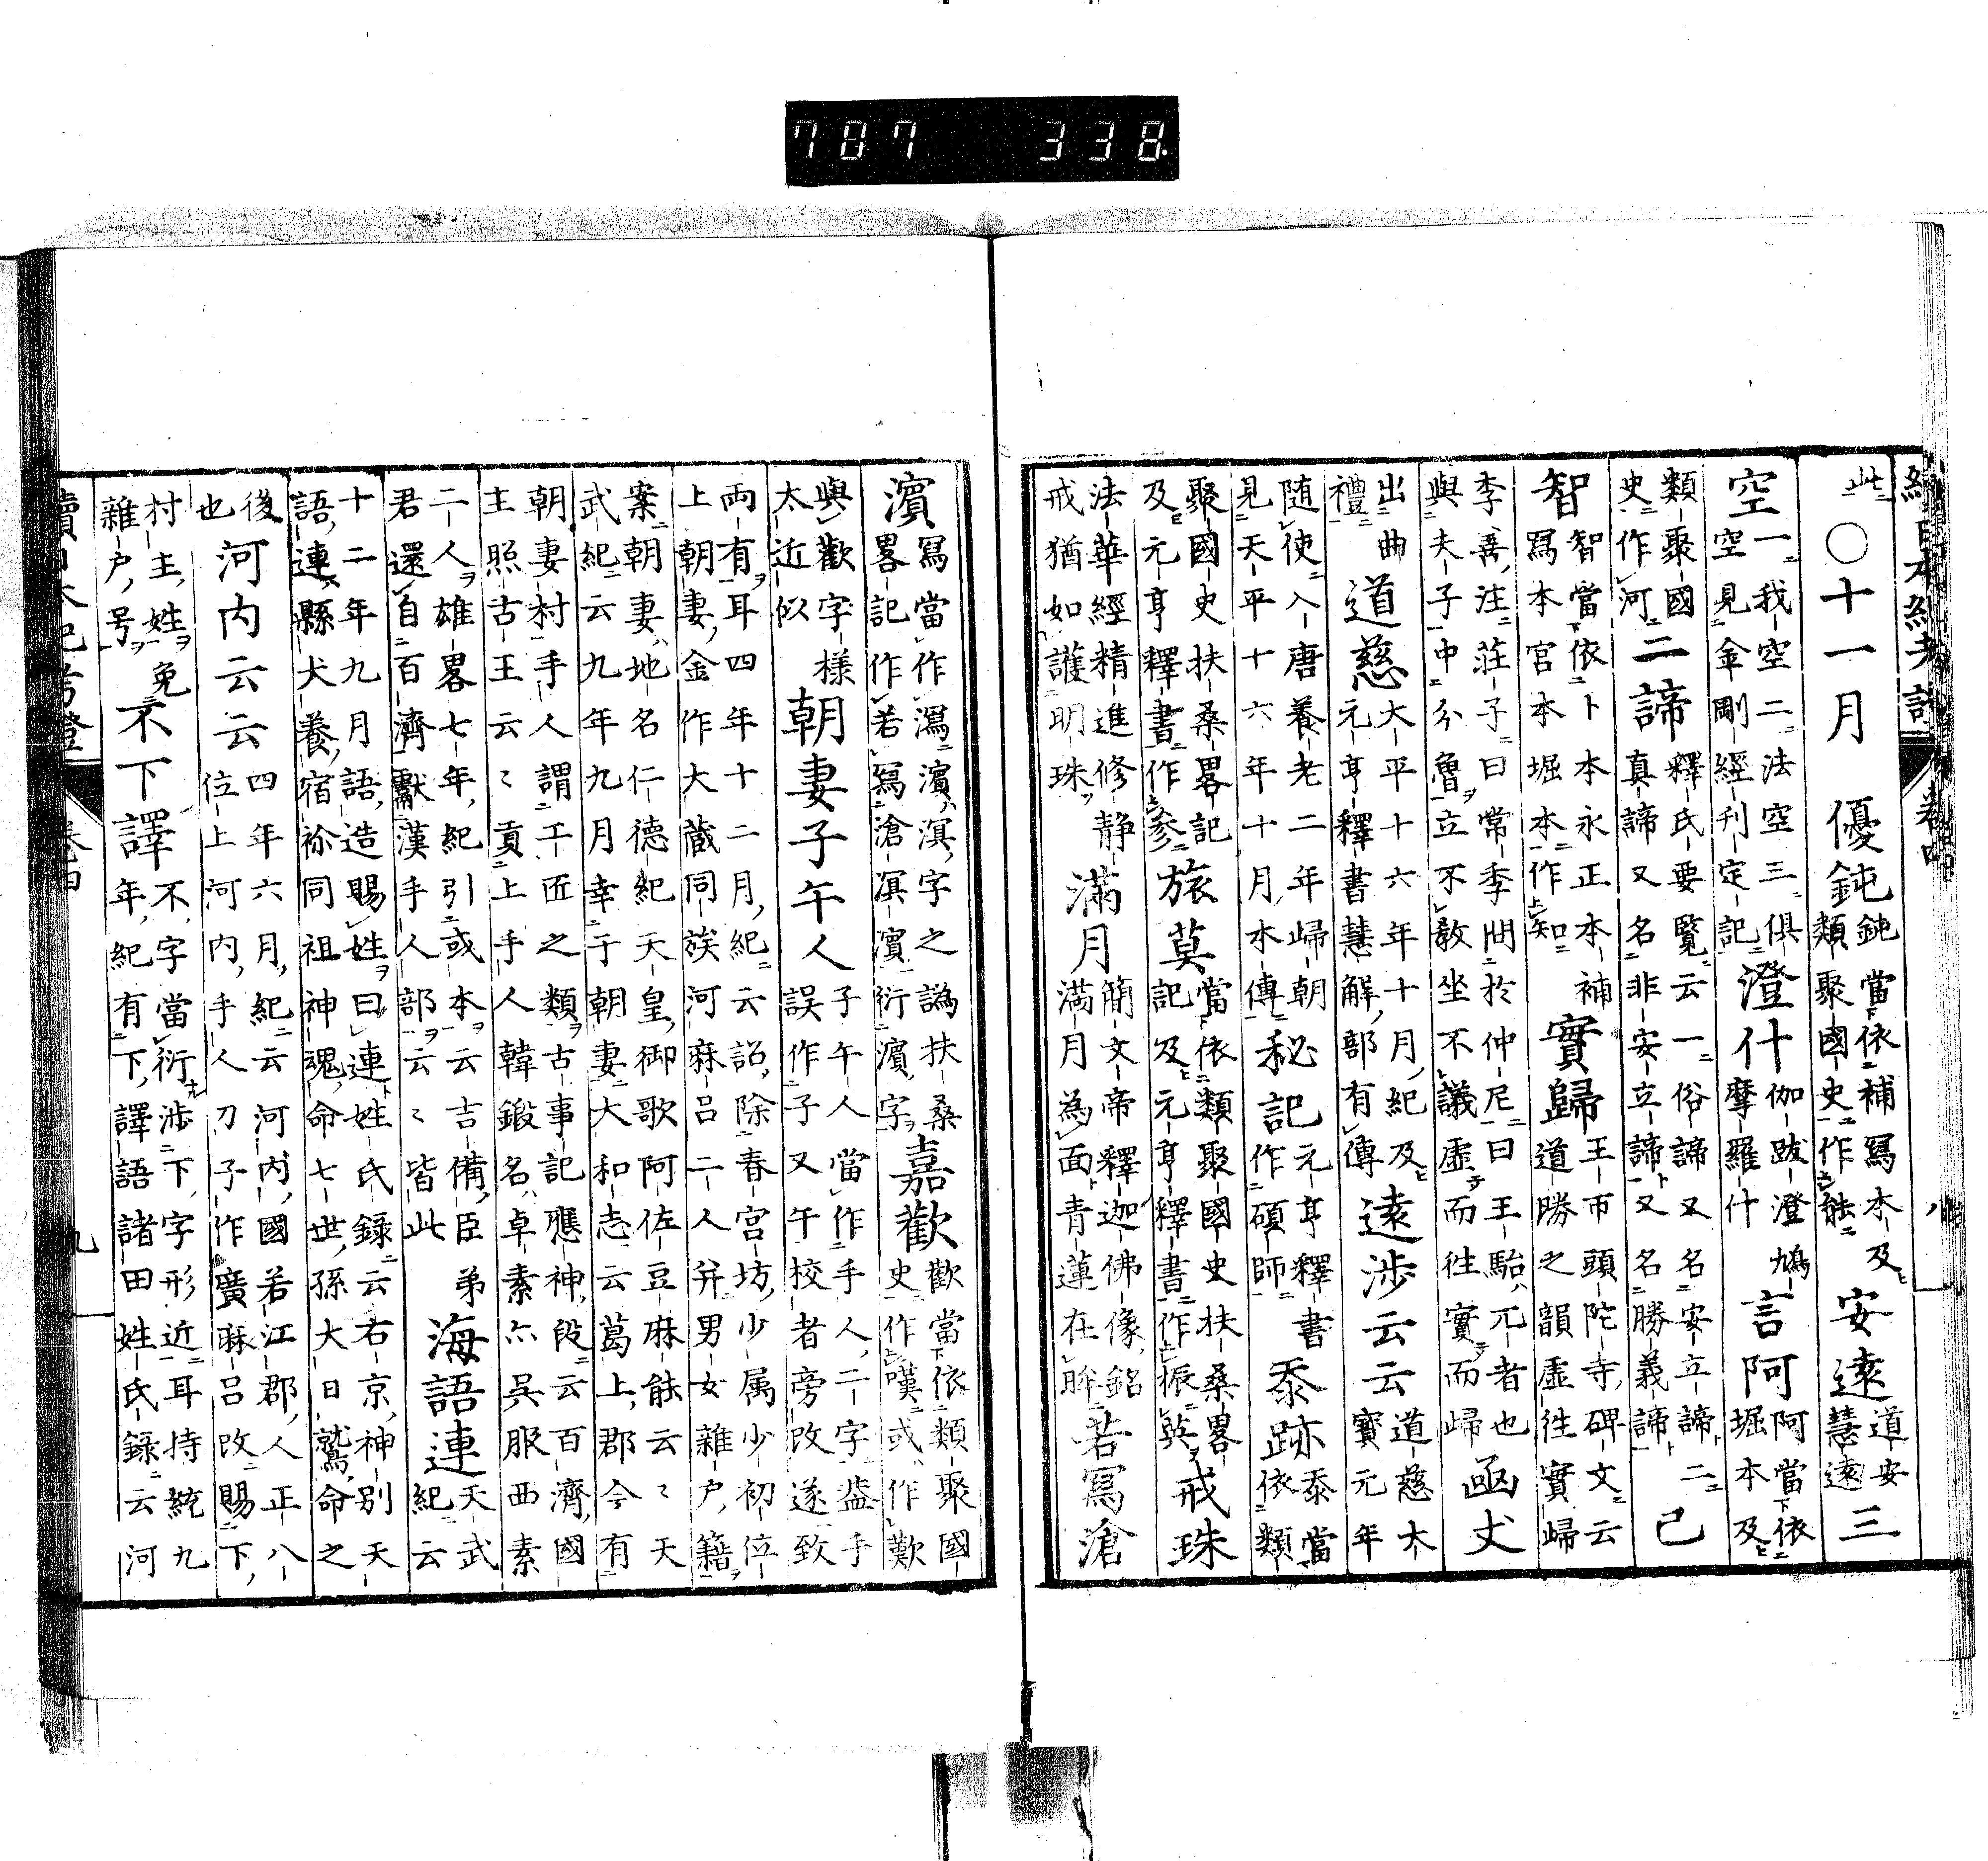 787 338
續日本紀考證 卷四 八
此 ○十一月 優鈍 鈍當依補寫本及類聚國史作能 安遠 道安慧遠 三
空 一我空二法空三俱空見金剛經刊定記 澄什 伽跋澄鳩摩羅什 言阿 阿當依堀本及
類聚國史作河 二諦 釋氏要覽云一俗諦又名安立諦二真諦又名非安立諦又名勝義諦 已
智 智當依卜本永正本補寫本宮本堀本作知 實歸 王巾頭陀寺碑文云道勝之韻虛往實歸
李善注莊子曰常季問於仲尼曰王駘兀者也與夫子中分魯立不敎坐不議虛而往實而歸 凾丈
出曲禮 道慈 大平十六年十月紀及元亨釋書慧解部有傳 遠涉云云 道慈大寶元年
随使入唐養老二年歸朝見天平十六年十月本傳 秘記 元亨釋書作碩師 忝跡 忝當依類
聚國史扶桑畧記及元亨釋書作參 旅莫 當依類聚國史扶桑畧記及元亨釋書作振英 戒珠
法華經精進修静戒猶如護明珠 滿月 簡文帝釋迦佛像銘滿月為面青蓮在眸 若寫滄
濵 寫當作瀉濵溟字之譌扶桑畧記作若寫滄溟濵衍濵字 嘉歡 歡當依類聚國史作嘆或作歎
與歡字様太近似 朝妻子午人 子午人當作手人二字盖手誤作子又午校者旁改遂致
両有耳四年十二月紀云詔除春宮坊少属少初位上朝妻金作大蔵同族河麻呂二人并男女雜户籍
案朝妻地名仁德紀天皇御歌阿佐豆麻能云〻天武紀云九年九月幸于朝妻大和志云葛上郡今有
朝妻村手人謂工匠之類古事記應神段云百濟國主照古王云〻貢上手人韓鍛名卓素亦呉服西素
二人雄畧七年紀引或本云吉備臣弟君還自百濟獻漢手人部云〻皆此 海語連 天武紀云
十二年九月語造賜姓曰連姓氏録云右京神別天語連縣犬養宿祢同祖神魂命七世孫大日鷲命之
後也 河内云云 四年六月紀云河内國若江郡人正八位上河内手人刀子作廣麻呂改賜下
村主姓免雜户号 不下譯 不字當衍涉下字形近耳持統九年紀有下譯語諸田姓氏録云河
續日本紀考證 卷四 九